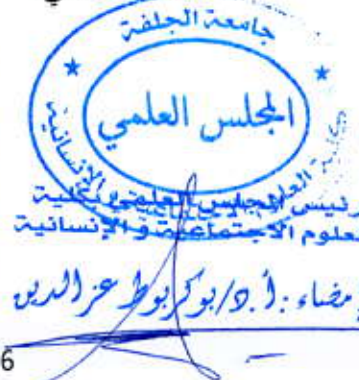 جامعة الجلفة
المجلس العلمي
رئيس المجلس العلمي بكلية
العلوم الاجتماعية و الإنسانية
إمضاء: أ.د/بوكربوط عز الدين
6